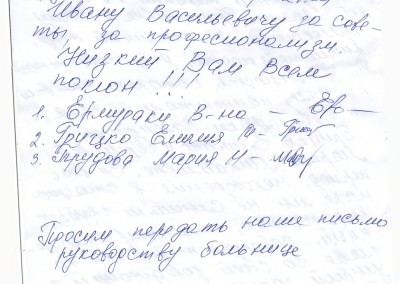 Ивану Васильевичу за сове-
ты, за професионализм.
Низкий Вам Всем
поклон !!!
1. Ермураки В-на —
2. Грицко Емилия
3. Трудова Мария М -
Просим передать наше письмо
руководству больнице